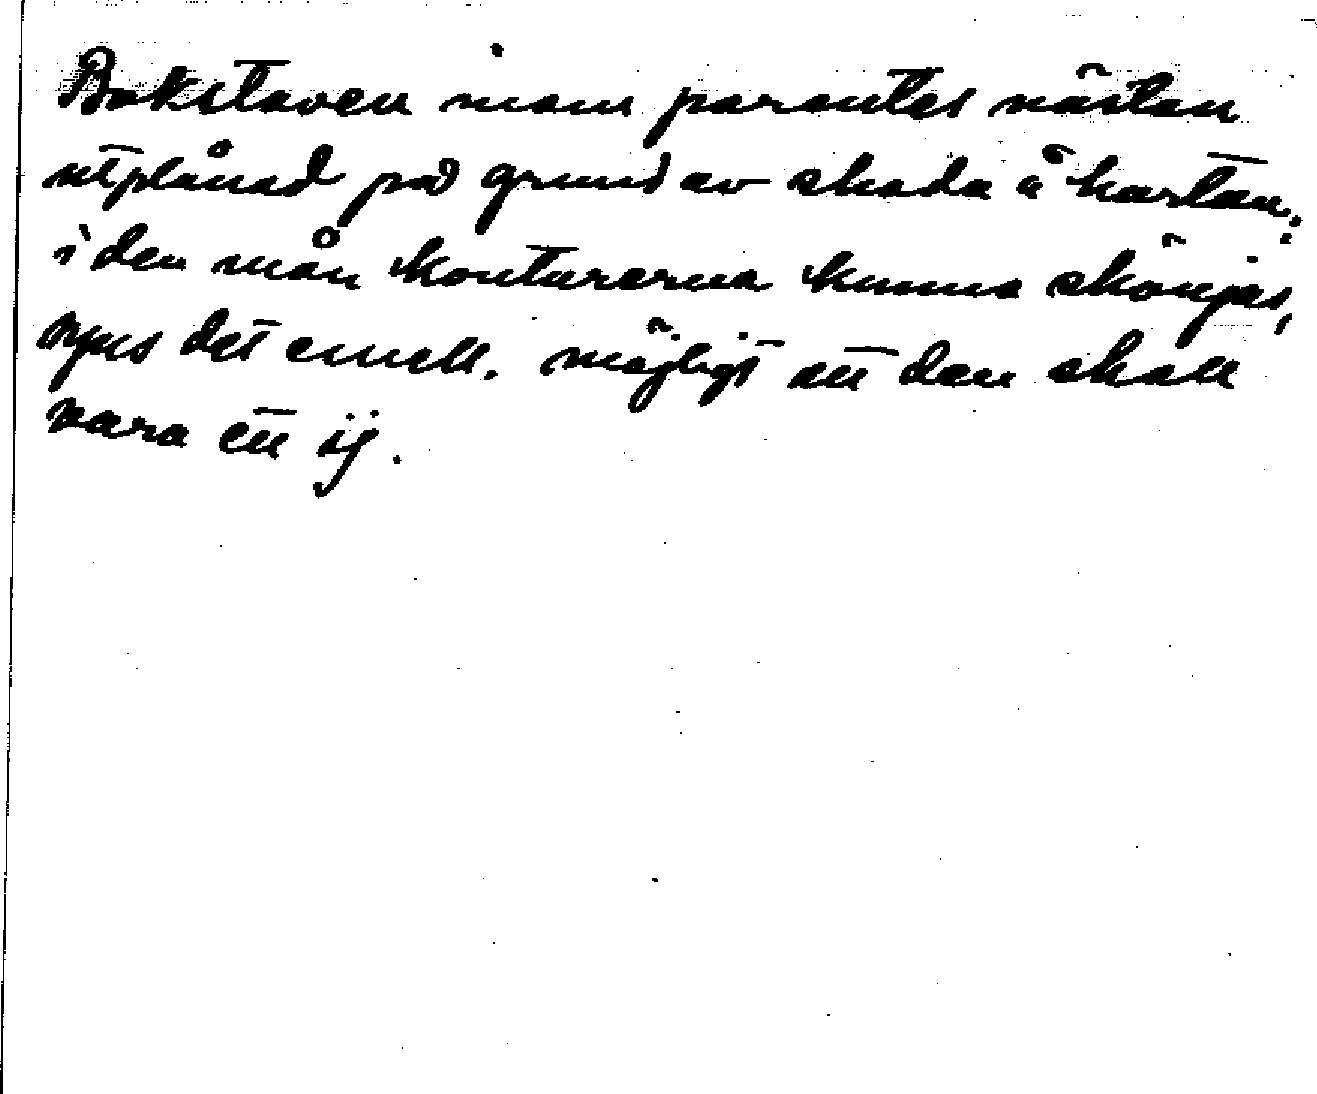 Bokstaven inom parantes nästan
utplånad på grund av skada å kartan;
i den mån konturerna kunna skönjas,
synes det emell. möjligt att den skall
vara ett ij.